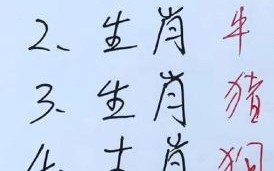 2、生肖牛
3、生肖猪
4、生肖狗